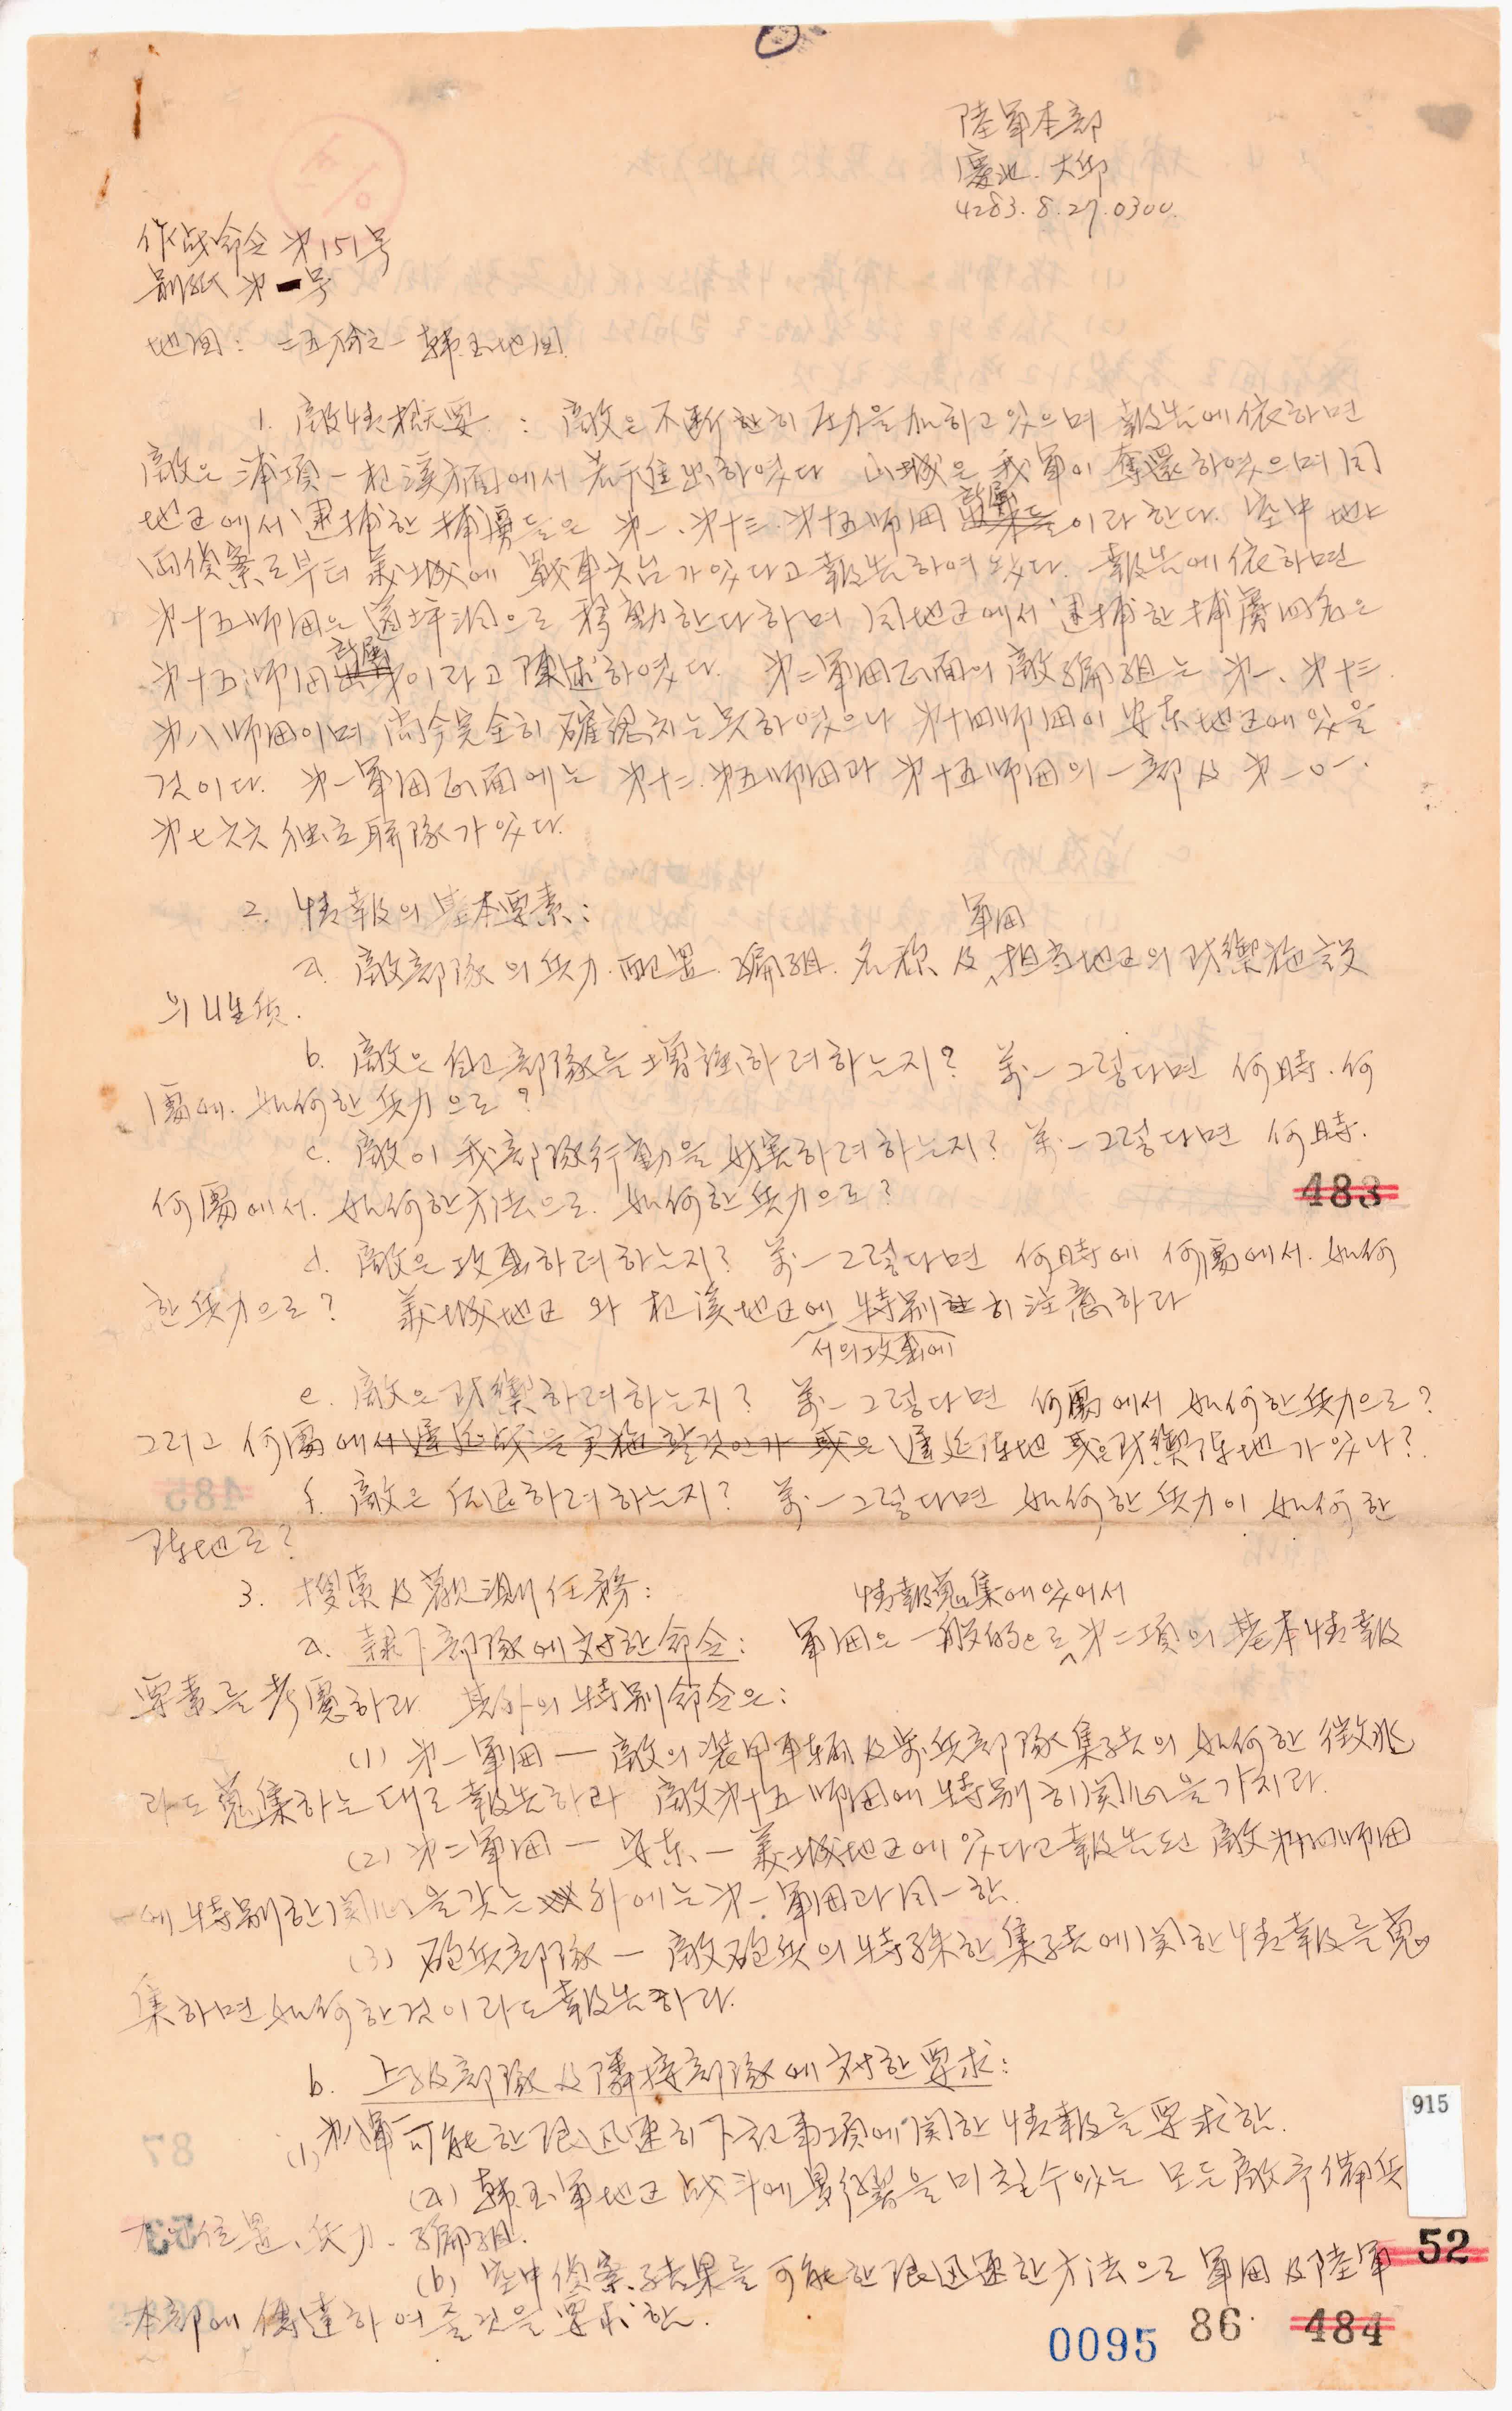 陸軍本部
慶北. 大邱
4283. 8. 27. 0300.
作战命令 第151号
別紙 第一号
地図: 二五分之一 韓国地図
1. 敵情概要 : 敵은 不断히 圧力을 加하고 있으며 報告에 依하면
敵은 浦項-杞溪方面에서 若干進出하였다 山城은 我軍이 奪還하였으며 同
地区에서 逮捕한 捕虜들은 第一、第十三、第十五师团 敵属이라 한다. 空中 地上
面偵察로부터 義城에 戰車六台가 있다고 報告하여 왔다. 報告에 依하면
第十五师团은 道坪洞으로 移動한다 하며 同地区에서 逮捕한 捕虜四名은
第十五师团 敵属이라고 陳述하였다. 第二軍团正面의 敵編組는 第一、第十三
第八师团이며 尚今完全히 確認치는 못하였으나 第十四师团이 安东地区에 있을
것이다. 第一軍团正面에는 第十二.第五师团과 第十五师团의 一部 及 第一〇一.
第七六六 独立联隊가 있다.
2. 情報의 基本要素:
軍团
a. 敵部隊의 兵力.配置.編組.名称 及 担当地区의 防禦施設
의 性質.
b. 敵은 自己部隊를 増强하려 하는지? 萬一 그렇다면 何時.何
處에.如何한 兵力으로?
c. 敵이 我部隊行動을 妨害하려 하는지? 萬一 그렇다면 何時.
何處에서. 如何한 方法으로. 如何한 兵力으로?
483
d. 敵은 攻擊하려 하는지? 萬一 그렇다면 何時에 何處에서.如何
한 兵力으로? 義城地区와 杞溪地区에 特別히 注意하라
서의 攻擊에
e. 敵은 防禦하려 하는지? 萬一 그렇다면 何處에서 如何한 兵力으로?
그리고 何處에서 遲延战을 実施할것인가 或은 遲延阵地 或은 防禦阵地가 있나?
f. 敵은 后退하려 하는지? 萬一 그렇다면 如何한 兵力이 如何한
阵地로?
3. 搜索 及 觀測任務:
情報蒐集에 있어서
a. 隸下部隊에 対한 命令: 軍团은 一般的으로 第二項의 基本情報
要素를 考慮하라 其外의 特別命令은:
(1) 第一軍团 — 敵의 裝甲車輛 及 步兵部隊集結의 如何한 徵兆
라도 蒐集하는 대로 報告하라 敵第十五师团에 特別히 関心을 가지라.
(2) 第二軍团 — 安东-義城地区에 있다고 報告된 敵第十四师团
에 特別한 関心을 갖는 外에는 第一軍团과 同一함.
(3) 砲兵部隊 — 敵砲兵의 特殊한 集結에 関한 情報를 蒐
集하면 如何한 것이라도 報告하라.
b. 上級部隊 及 隣接部隊에 対한 要求:
(1) 第八軍 可能한 限 迅速히 下記事項에 関한 情報를 要求함.
(a) 韓国軍地区 战斗에 影響을 미칠수 있는 모든 敵予備兵
力의 位置、兵力、編組.
(b) 空中偵察 結果를 可能한 限 迅速한 方法으로 軍团 及 陸軍
本部에 傳達하여 줄것을 要求함.
915
52
0095 86 484